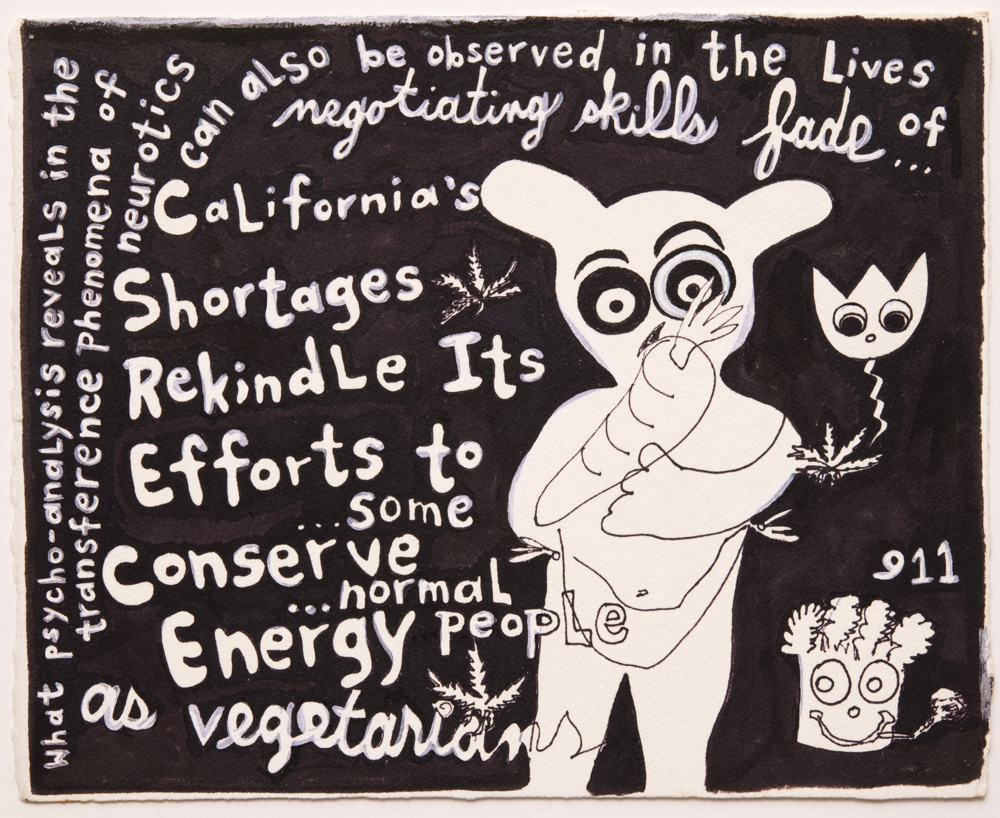 What psycho-analysis reveals in the
transference Phenomena of
neurotics
can also be observed in the Lives
negotiating skills fade of
...
California's
Shortages
Rekindle Its
Efforts to
...some
Conserve
...normal
Energy people
as vegetarians
911